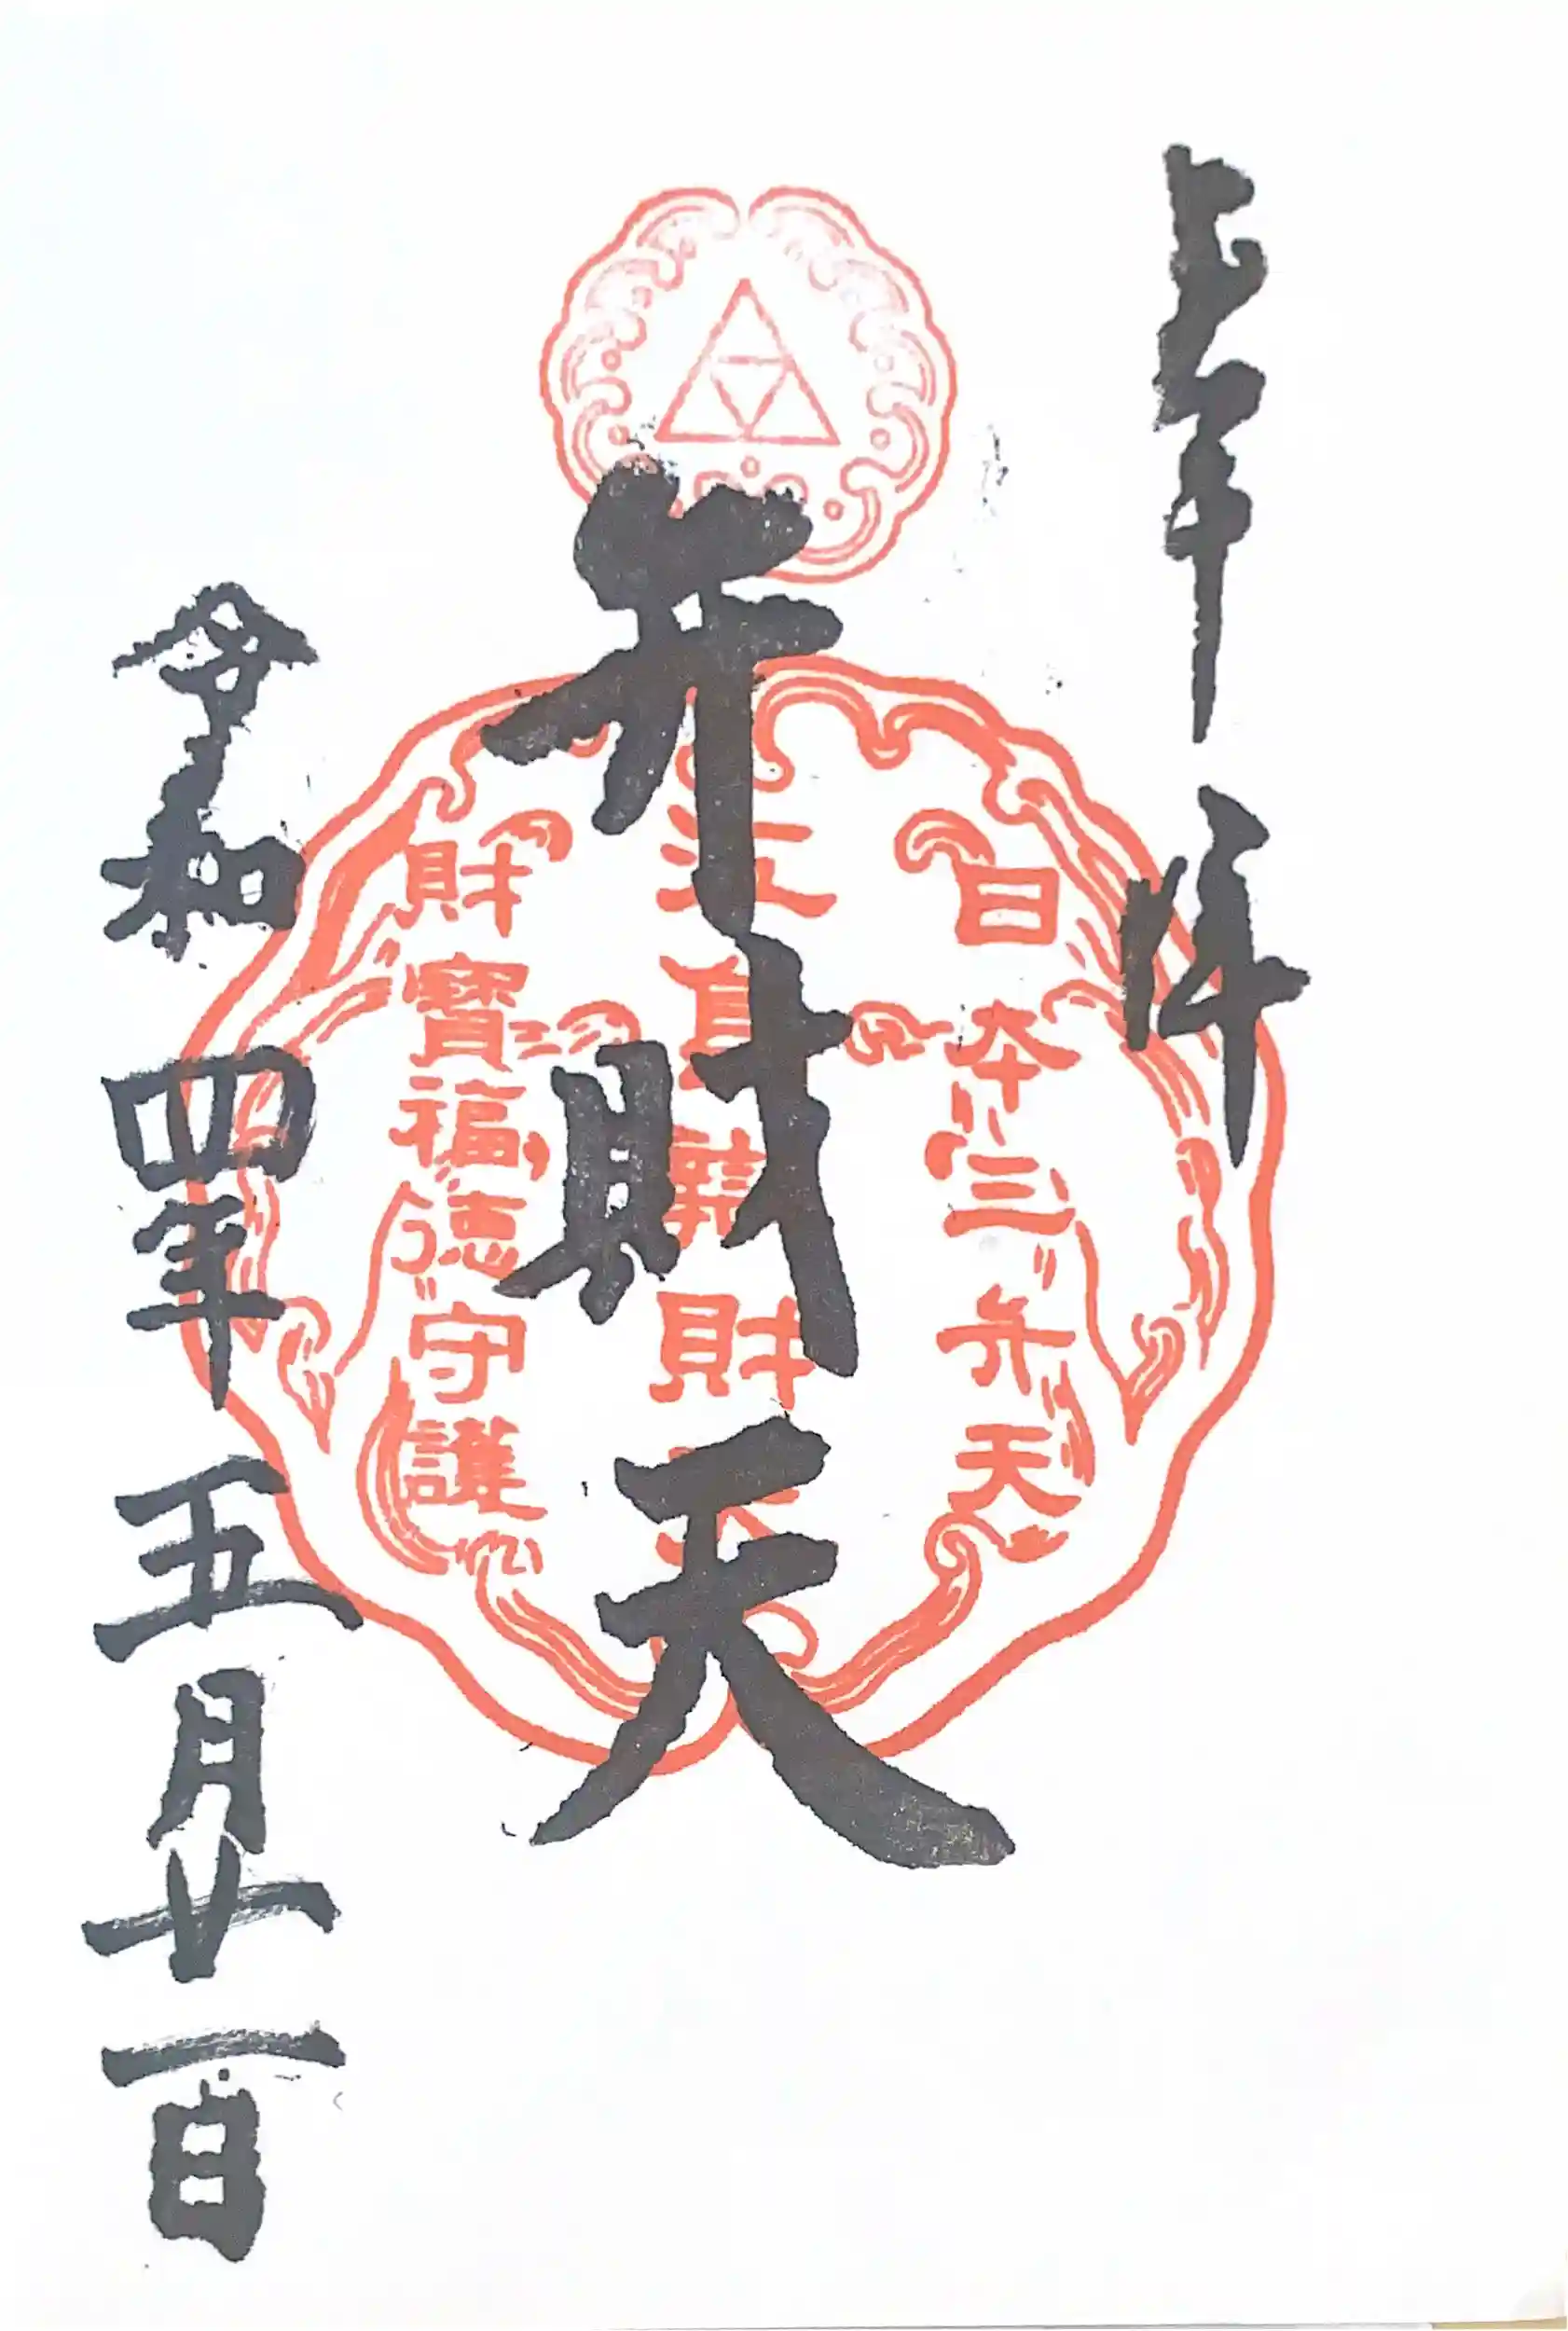 奉拝
弁財天
令和四年五月廿一日
日本三弁天
財寶福徳守護